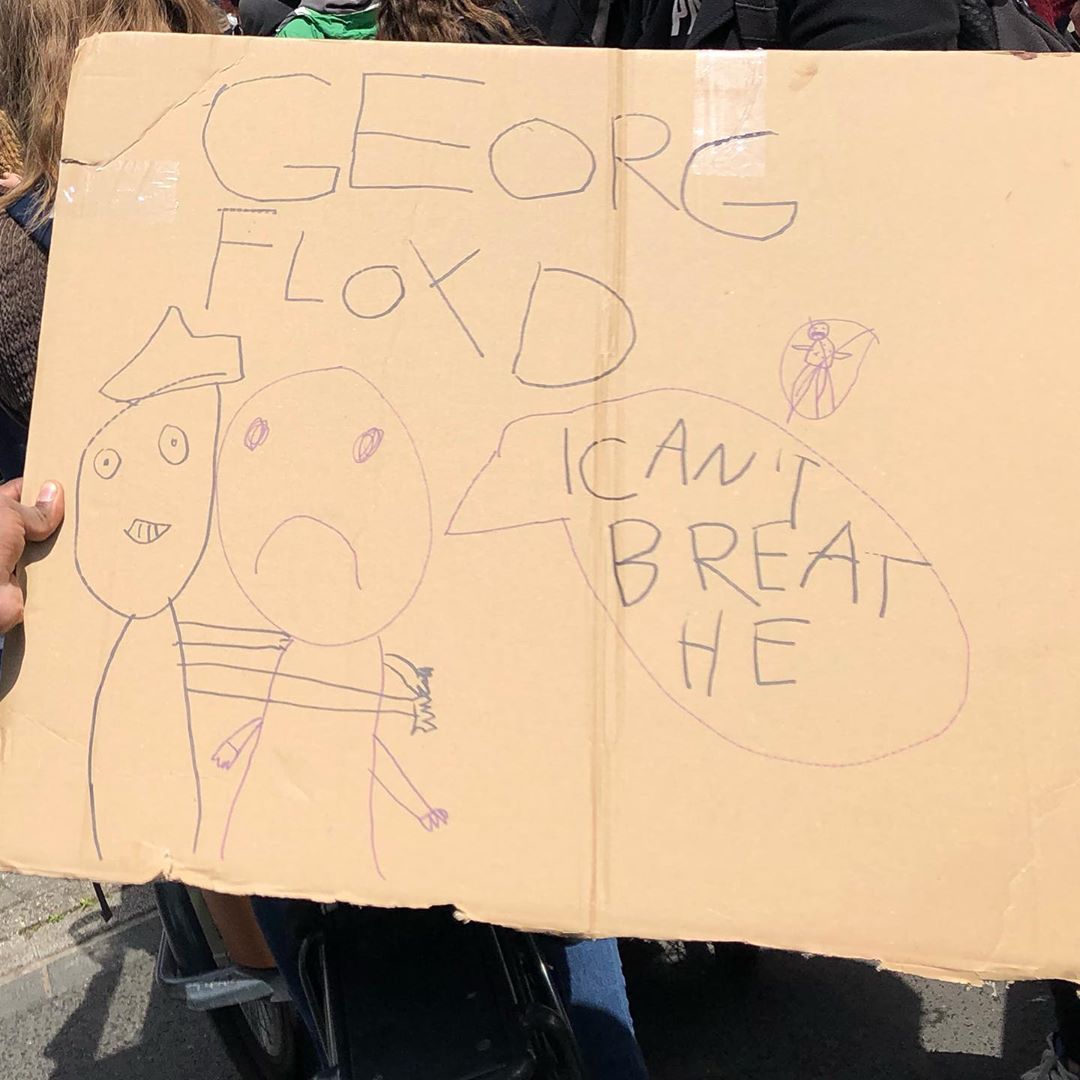 GEORG
FLOYD
I CAN'T
BREAT
HE